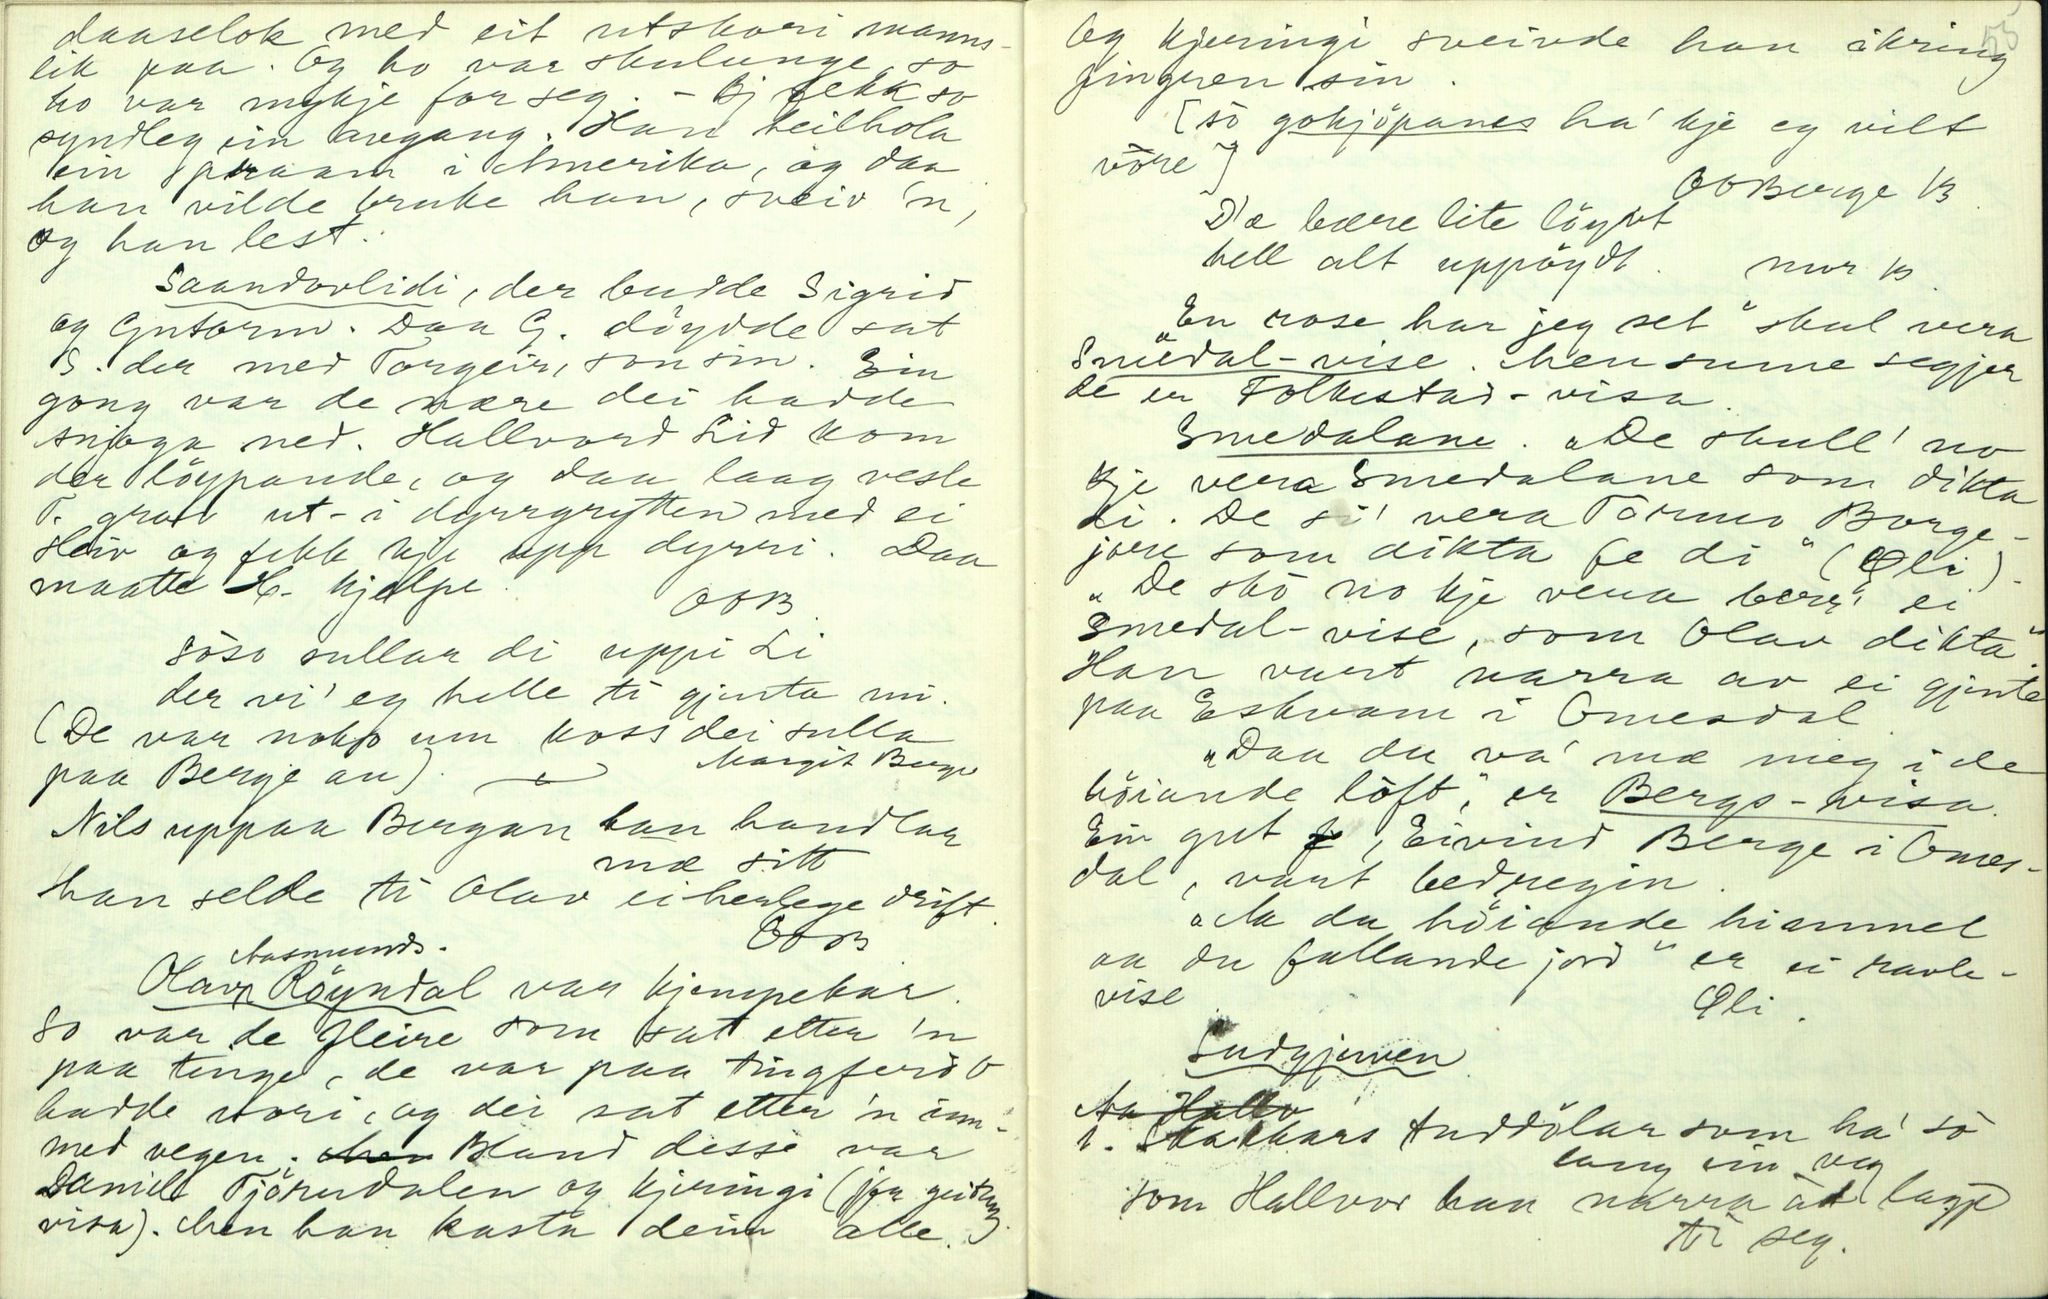 daaselok med eit utskori manns-
lik paa. Og ho var skulunge, so
ho var mykje for seg. - Ej fekk so
syndleg ein avgang. Han heilhola
ein spraam i Amerika, og daa
han vilde bruke han, sveiv 'n,
og han lest.
Saandovlidi, der budde Sigrid
og Gutorm. Daa G. döydde sat
S. der med Torgeir, son sin. Ein
gong var de nære dei hadde
snjoga ned. Hallvord Lid kom
der löypande, og daa laag vesle
T. graat ut-i dyrrgrytten med ei
skeiv og fekk kje upp dyrri. Daa
maatte H. hjelpe.
OOB.
Söso sullar di uppi Li
der vi' eg helle ti gjenta mi.
(De var noko um koss dei sulla
paa Berge au).
Margit Berge
Nils uppaa Bergan han handlar
mæ sitt
han selde ti Olav ei herlege drift.
OOB
Aasmunds.
Olav Röyndal var kjempekar.
So var de fleire som sat etter 'n
paa tinge, de var paa tingferd O
hadde vori, og dei sat etter 'n im-
med vegen. Men Bland desse var
Daniel Tjönndalen og kjeringi (jfr geitung
visa). Men han kasta deim alle.
55
Og kjeringi sveivde han ikring
fingren sin.
[sö gokjöpanes ha' kje eg vilt
vöre]
OOBerge B.
D'æ bære lite löynt
hell alt uppöydt. mor B.
"En rose har jeg set" skul vera
Smedal-vise. Men sume segjer
de er Folkestad-visa.
Smedalane. "De skull' no
kje vera Smedalane som dikta
di. De si' vera Tormo Borge-
jore som dikta fe di" (Oli).
"De skö no kje vera bærr' ei
Smedal-vise, som Olav dikta".
Han vart narra av ei gjente
paa Eskvam i Omesdal
"Daa du va' mæ meg i de
höiande löft," er Bergs-visa.
Ein gut f, Eivind Berge i Omes-
dal, vart bedregin.
"Aa du höiande himmel
aa du fallande jord" er ei ravle-
vise.
Oli.
Sudgjerven
Aa Hallv
1. Stakkars Auddölar som ha' sö
lang ein veg
som Hallvor han narra at lagje
ti seg.